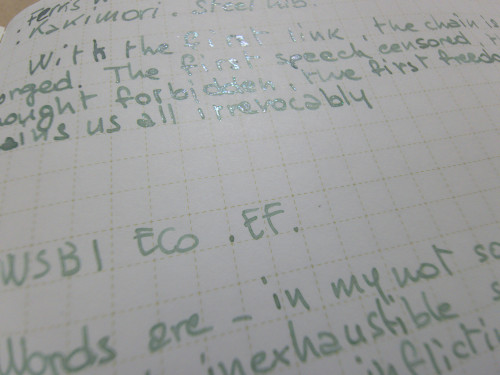 . Kakimori. Steel nib.
With the first link, the chain is
orged. The first speech censored, t
ought forbidden, the first freedo
ains us all irrevocably
WSBI ECO . EF.
Words are - in my not so
inexhaustible s
inflictin